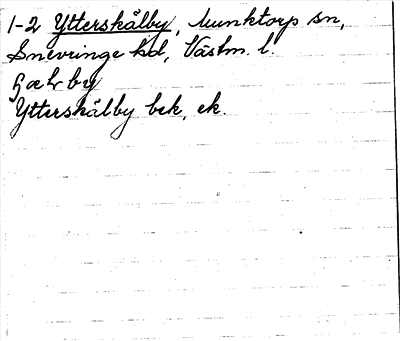 1-2 Ytterskälby, Munktorp sn,
Snevringe hd, Västm. l.
by
Ytterskälby bek, ek.